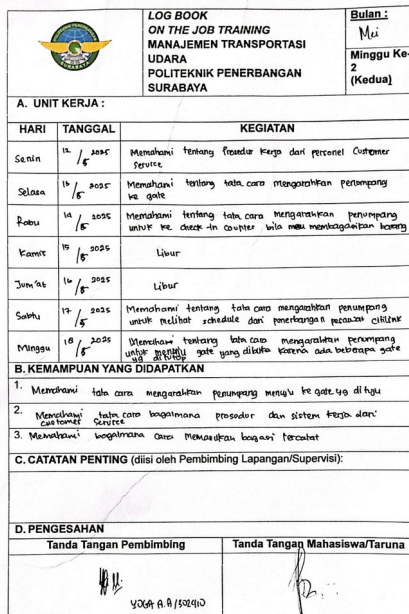 LOG BOOK
ON THE JOB TRAINING
MANAJEMEN TRANSPORTASI
UDARA
POLITEKNIK PENERBANGAN
SURABAYA
Bulan :
Mei
Minggu Ke-
2
(Kedua)
A. UNIT KERJA :
HARI TANGGAL KEGIATAN
Senin 12/5 2025 Memahami tentang Prosedur Kerja dari personel Customer
Service
Selasa 13/5 2025 Memahami tentang tata cara mengarahkan penumpang
ke gate
Rabu 14/5 2025 Memahami tentang tata cara mengarahkan penumpang
untuk ke check-in counter bila membagasikan barang
Kamis 15/5 2025 Libur
Jum'at 16/5 2025 Libur
Sabtu 17/5 2025 Memahami tentang tata cara mengarahkan penumpang
untuk melihat schedule dari penerbangan pesawat citilink
Minggu 18/5 2025 Memahami tentang tata cara mengarahkan penumpang
untuk menuju gate yang dibuka karena ada beberapa gate
yg ditutup
B. KEMAMPUAN YANG DIDAPATKAN
1. Memahami tata cara mengarahkan penumpang menuju ke gate yg dituju
2. Memahami tata cara bagaimana prosedur dan sistem kerja dari
customer service
3. Memahami bagaimana cara memasukan bagasi tercatat
C. CATATAN PENTING (diisi oleh Pembimbing Lapangan/Supervisi):
D. PENGESAHAN
Tanda Tangan Pembimbing Tanda Tangan Mahasiswa/Taruna
YOGA A.A/302910